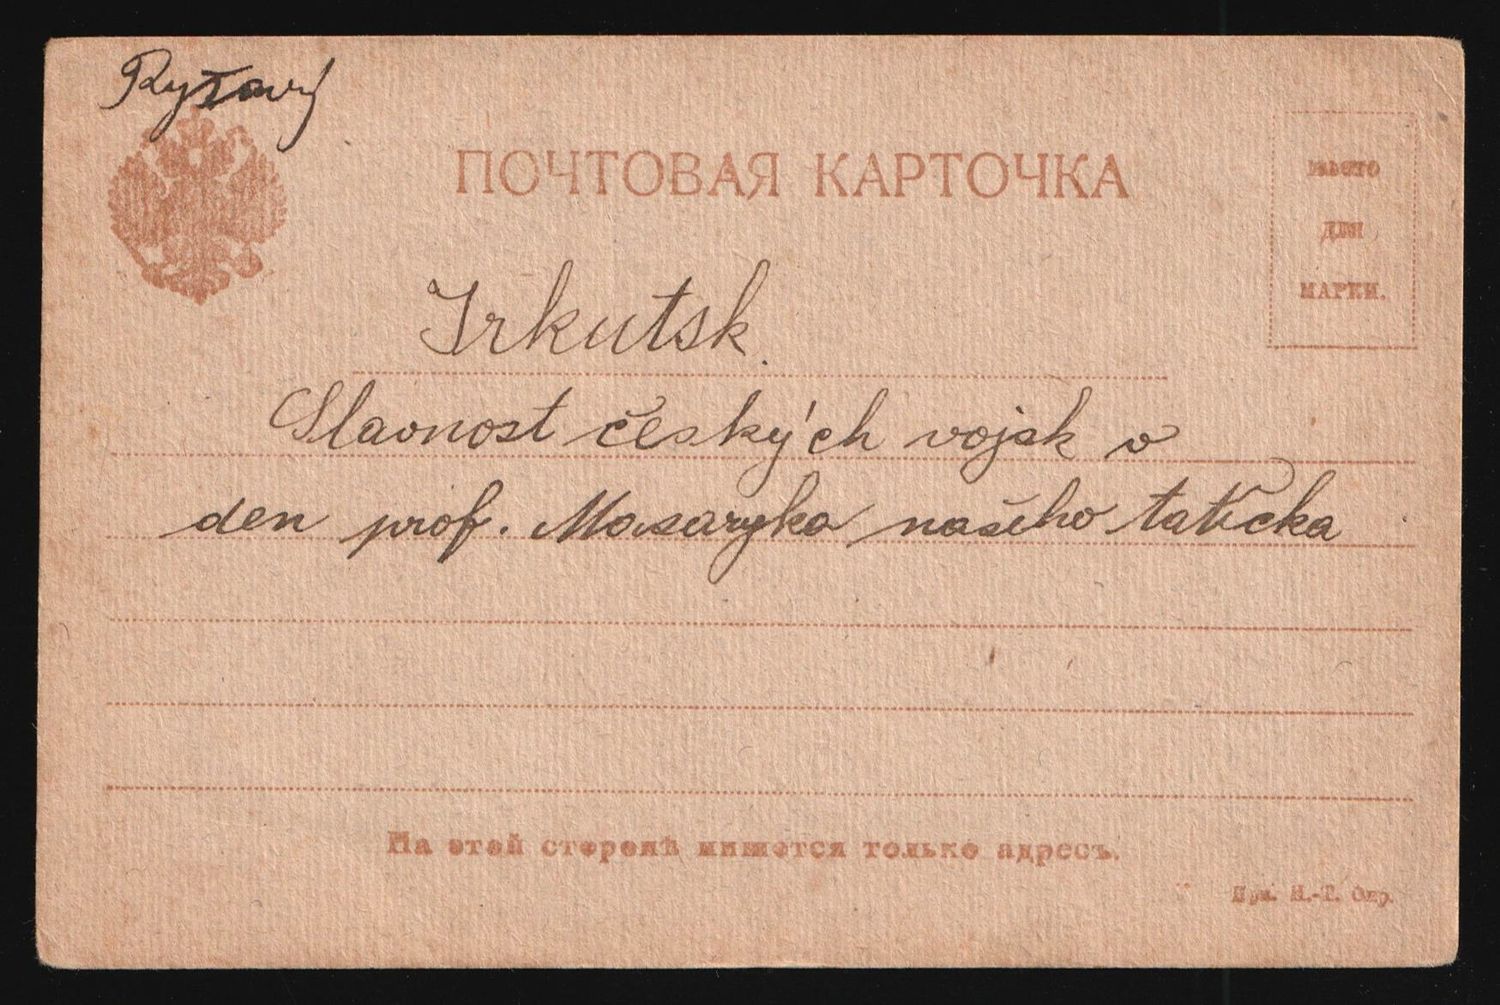 Rytavý
ПОЧТОВАЯ КАРТОЧКА
МѢСТО
ДЛЯ
МАРКИ.
Irkutsk.
Slavnost českých vojsk v
den prof. Masaryka našeho tatíčka
На этой сторонѣ пишется только адресъ.